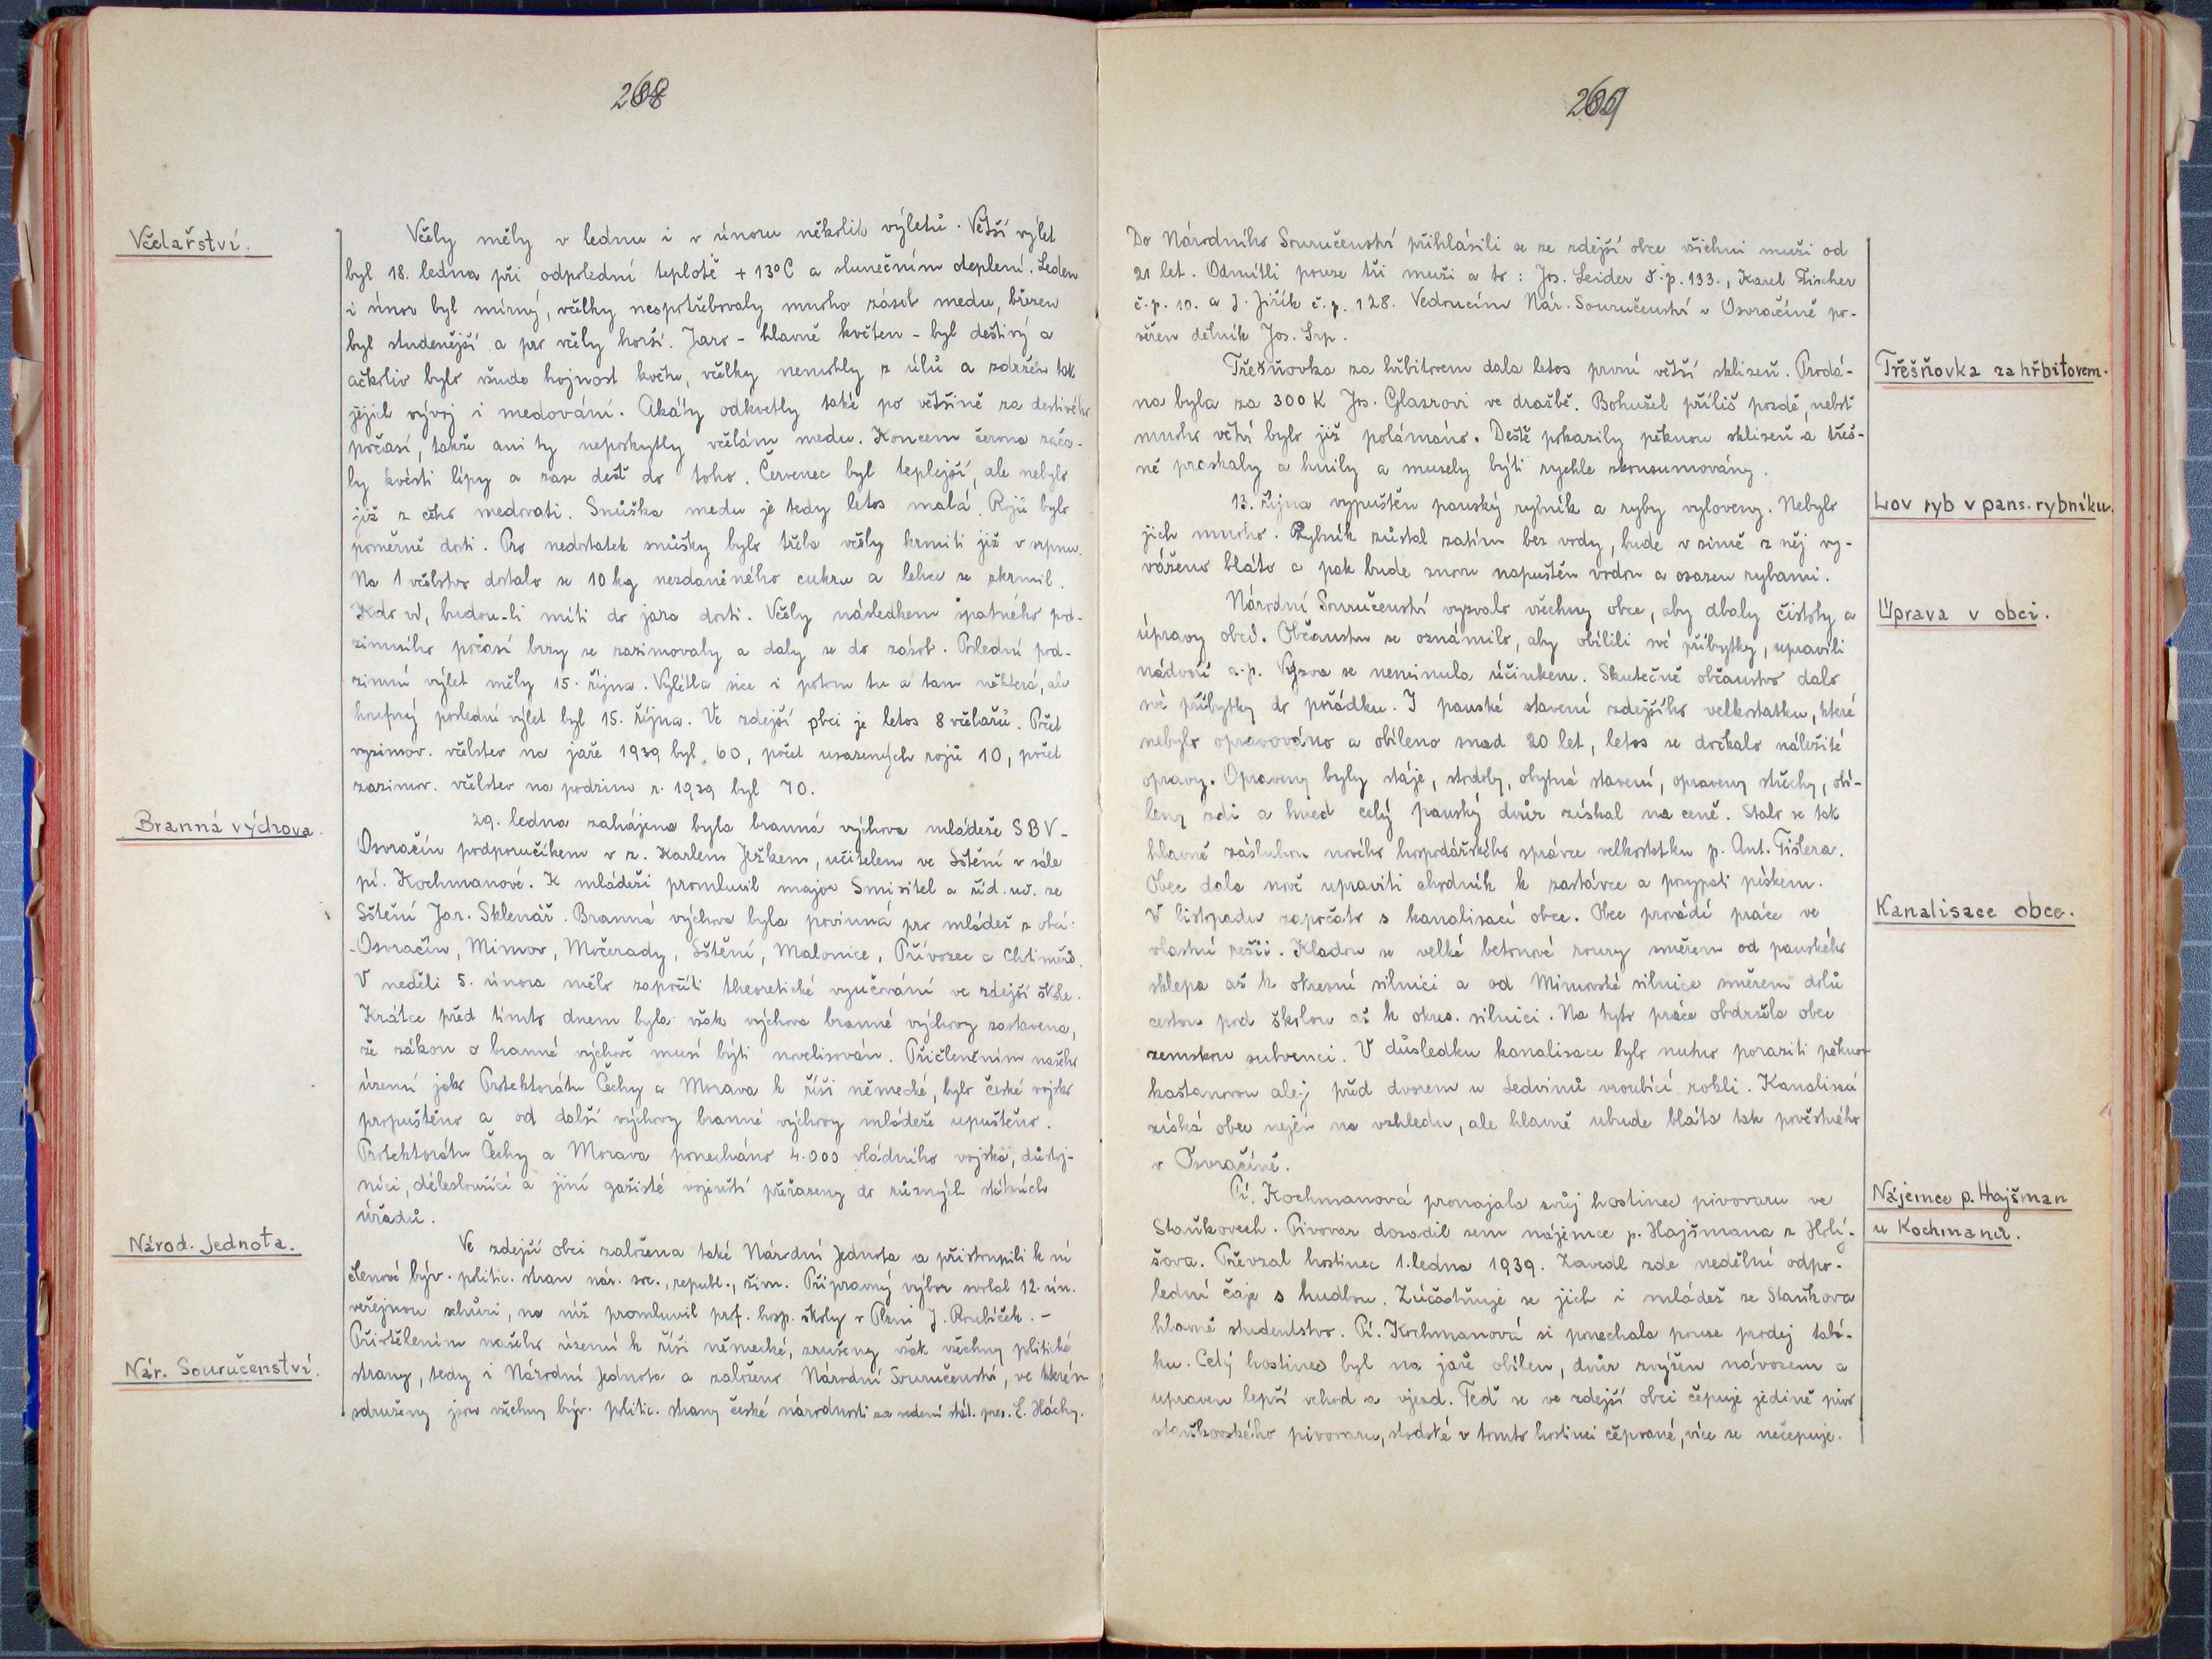 268
Včelařství.
Včely měly v lednu i v únoru několik výletů. Větší výlet
byl 18. ledna při odpolední teplotě + 13°C a slunečním oteplení. Leden
i únor byl mírný, včelky nespotřebovaly mnoho zásob medu, březen
byl studenější a pro včely horší. Jaro - hlavně květen - byl deštivý a
ačkoliv bylo všude hojnost květu, včelky nemohly z úlů a zdržen tak
jejich vývoj i medování. Akáty odkvetly také po většině za deštivého
počasí, takže ani ty neposkytly včelám medu. Koncem června zača-
ly kvésti lípy a zase déšť do toho. Červenec byl teplejší, ale nebylo
již z čeho medovati. Snůška medu je tedy letos malá. Rojů bylo
poměrně dosti. Pro nedostatek snůšky bylo třeba včely krmiti již v srpnu.
Na 1 včelstvo dostalo se 10 kg nezdaněného cukru a lehce se zkrmil.
Kdo ví, budou-li míti do jara dosti. Včely následkem špatného pod-
zimního počasí brzy se zazimovaly a daly se do zásob. Poslední pod-
zimní výlet měly 15. října. Vylétla sice i potom tu a tam některá, ale
houfný poslední výlet byl 15. října. Ve zdejší obci je letos 8 včelařů. Počet
vyzimov. včelstev na jaře 1939 byl 60, počet usazených rojů 10, počet
zazimov. včelstev na podzim r. 1939 byl 70.
Branná výchova.
29. ledna zahájena byla branná výchova mládeže SBV-
Osvračín podporučíkem v z. Karlem Ježkem, učitelem ve Štění v sále
pí. Kochmanové. K mládeži promluvil major Smisitel a říd. uč. ze
Štění Jar. Sklenář. Branná výchova byla povinná pro mládež z obcí:
-Osvračín, Mimov, Močerady, Štění, Malonice, Přívozec a Chotiměř.
V neděli 5. února mělo započíti theoretické vyučování ve zdejší škole.
Krátce před tímto dnem byla však výchova branné výchovy zastavena,
že zákon o branné výchově musí býti novelisován. Přičleněním našeho
území jako Protektorátu Čechy a Morava k říši německé, bylo české vojsko
propuštěno a od další výchovy branné výchovy mládeže upuštěno.
Protektorátu Čechy a Morava ponecháno 4.000 vládního vojska, důstoj-
níci, délesloužící a jiní gažisté vojenští přeřazeny do různých státních
úřadů.
Národ. Jednota.
Ve zdejší obci založena také Národní Jednota a přistoupili k ní
členové býv. politic. stran nár. soc., republ., živn. Přípravný výbor svolal 12. ún.
veřejnou schůzi, na níž promluvil prof. hosp. školy v Plzni J. Roubíček. -
Přivtělením našeho území k říši německé, zrušeny však všechny politické
Nár. Souručenství.
strany, tedy i Národní Jednota a založeno Národní Souručenství, ve kterém
sdruženy jsou všechny býv. politic. strany české národnosti za vedení stát. pres. E. Háchy.
269
Do Národního Souručenství přihlásili se ze zdejší obce všichni muži od
21 let. Odmítli pouze tři muži a to: Jos. Leider č.p. 133., Karel Fischer
č.p. 10. a J. Jiřík č.p. 128. Vedoucím Nár. Souručenství v Osvračíně po-
věřen dělník Jos. Srp.
Třešňovka za hřbitovem.
Třešňovka za hřbitovem dala letos první větší sklizeň. Prodá-
na byla za 300 K Jos. Glasrovi ve dražbě. Bohužel příliš pozdě, neboť
mnoho větví bylo již polámáno. Deště pokazily pěknou sklizeň a třeš-
ně praskaly a hnily a musely býti rychle skonsumovány.
Lov ryb v pans. rybníku.
13. října vypuštěn panský rybník a ryby vyloveny. Nebylo
jich mnoho. Rybník zůstal zatím bez vody, bude v zimě z něj vy-
váženo bláto a pak bude znovu napuštěn vodou a osazen rybami.
Úprava v obci.
Národní Souručenství vyzvalo všechny obce, aby dbaly čistoty a
úpravy obcí. Občanstvu se oznámilo, aby obílili své příbytky, upravili
nádvoří a.p. Výzva se neminula účinkem. Skutečně občanstvo dalo
své příbytky do pořádku. I panské stavení zdejšího velkostatku, které
nebylo opravováno a obíleno snad 20 let, letos se dočkalo náležité
opravy. Opraveny byly stáje, stodoly, obytná stavení, opraveny střechy, obí-
leny zdi a hned celý panský dvůr získal na ceně. Stalo se tak
hlavně zásluhou nového hospodářského správce velkostatku p. Ant. Fišera.
Obec dala nově upraviti chodník k zastávce a posypati pískem.
Kanalisace obce.
V listopadu započato s kanalisací obce. Obec provádí práce ve
vlastní režii. Kladou se velké betonové roury směrem od panského
sklepa až k okresní silnici a od Mimovské silnice směrem dolů
cestou pod školou až k okres. silnici. Na tyto práce obdržela obec
zemskou subvenci. V důsledku kanalisace bylo nutno poraziti pěknou
kaštanovou alej před dvorem u Ledvinů vroubící rokli. Kanalisací
získá obec nejen na vzhledu, ale hlavně ubude bláta tak pověstného
v Osvračíně.
Nájemce p. Hajšman
u Kochmanů.
Pí. Kochmanová pronajala svůj hostinec pivovaru ve
Staňkovech. Pivovar dosadil sem nájemce p. Hajšmana z Holý-
šova. Převzal hostinec 1. ledna 1939. Zavedl zde nedělní odpo-
lední čaje s hudbou. Zúčastňuje se jich i mládež ze Staňkova
hlavně studentstvo. Pí. Kochmanová si ponechala pouze prodej tabá-
ku. Celý hostinec byl na jaře obílen, dvůr zvýšen návozem a
upraven lepší vchod a vjezd. Teď se ve zdejší obci čepuje jedině pivo
staňkovského pivovaru, stodské v tomto hostinci čepované, více se nečepuje.